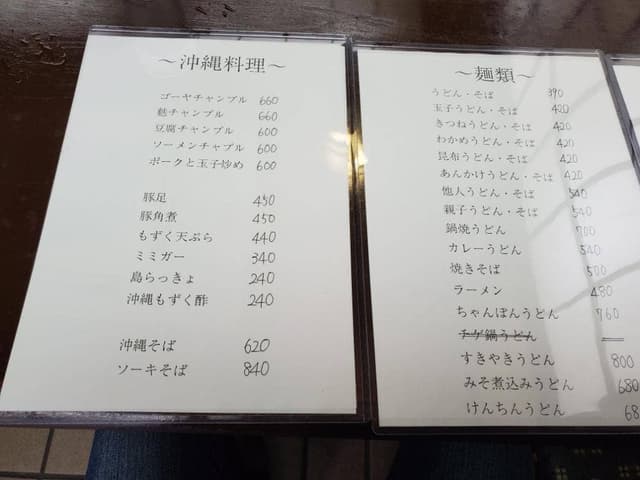 ～沖縄料理～
ゴーヤチャンプル 660
麩チャンプル 660
豆腐チャンプル 600
ソーメンチャプル 600
ポークと玉子炒め 600
豚足 450
豚角煮 450
もずく天ぷら 440
ミミガー 340
島らっきょ 240
沖縄もずく酢 240
沖縄そば 620
ソーキそば 840
～麺類～
うどん・そば 390
玉子うどん・そば 420
きつねうどん・そば 420
わかめうどん・そば 420
昆布うどん・そば 420
あんかけうどん・そば 420
他人うどん・そば 540
親子うどん・そば 540
鍋焼うどん 700
カレーうどん 540
焼きそば 500
ラーメン 480
ちゃんぽんうどん 760
チゲ鍋うどん
すきやきうどん 800
みそ煮込みうどん 680
けんちんうどん 68